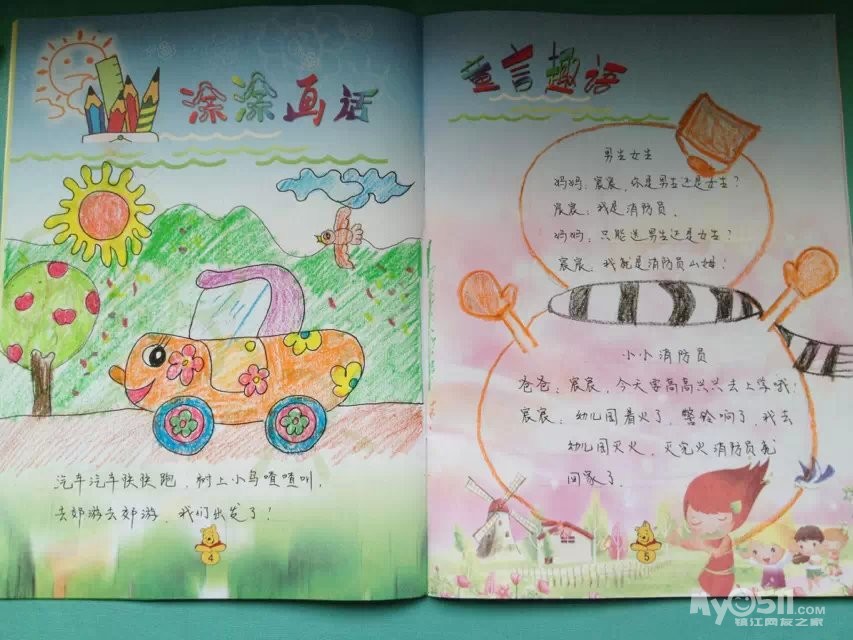 涂涂画话
汽车汽车快快跑，树上小鸟喳喳叫，
去郊游去郊游，我们出发了！
4
童言趣语
男生女生
妈妈：宸宸，你是男生还是女生？
宸宸：我是消防员。
妈妈：只能选男生还是女生？
宸宸：我就是消防员山姆！
小小消防员
爸爸：宸宸，今天要高高兴兴去上学哦！
宸宸：幼儿园着火了，警铃响了，我去
幼儿园灭火，灭完火消防员就
回家了。
5
My0511.com
镇江网友之家